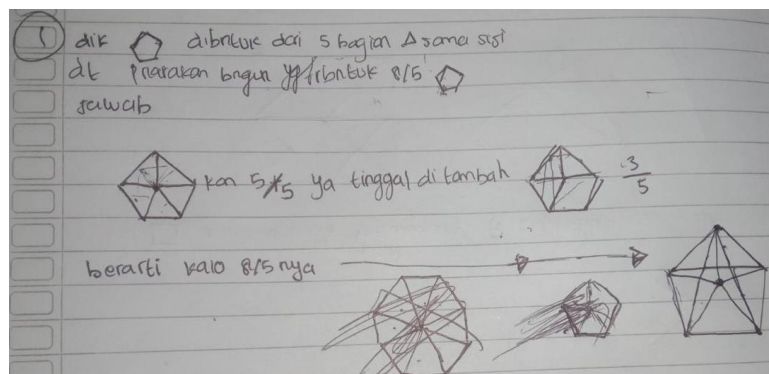 1 dik dibntuk dari 5 bagian Δ sama sisi
dt bngun yg 8/5
jawab
kan 5/5 ya tinggal di tambah 3/5
berarti kalo 8/5 nya